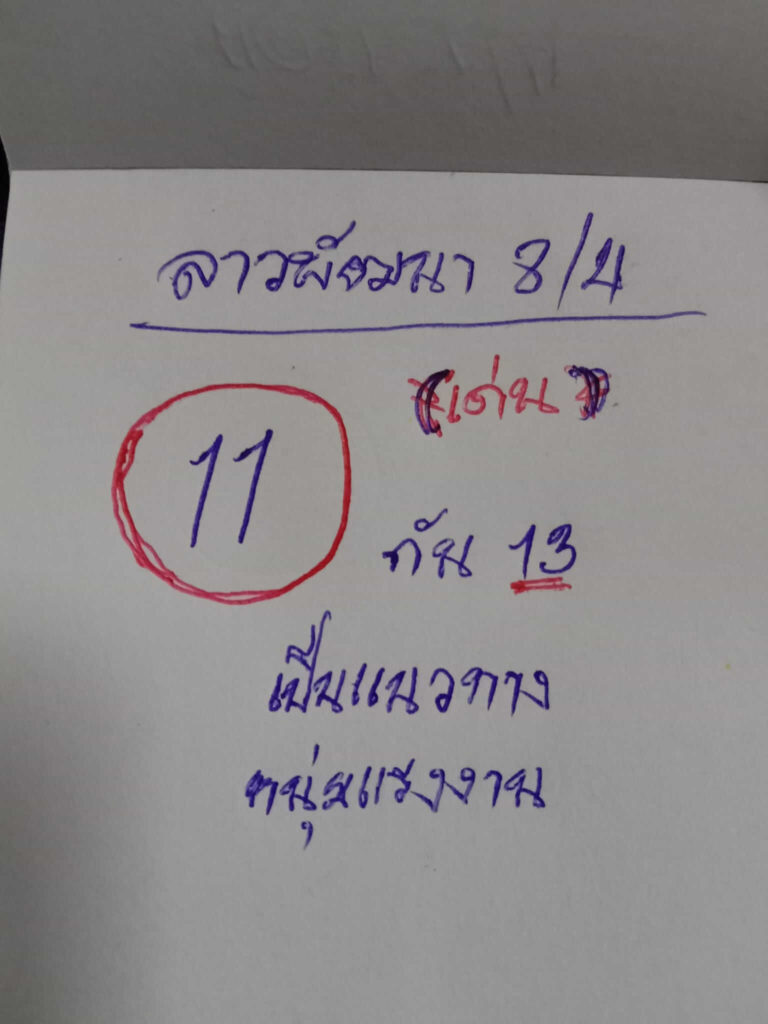 ลาวพัฒนา 8/4
(เด่น)
11
กัน 13
เป็นแนวทาง
หนุ่มแรงงาน